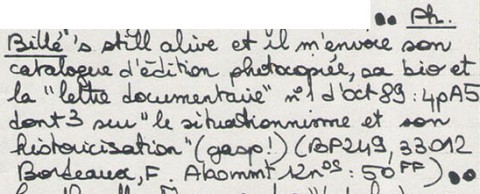 •• Ph.
Billé's still alive et il m'envoie son
catalogue d'édition photocopiée, sa bio et
la "lettre documentaire" n°1 d'oct 89 : 4pA5
dont 3 sur "le situationnisme et son
historicisation" (gasp!) (BP249, 33012
Bordeaux, F. Abommt 12n°s : 50FF) ••